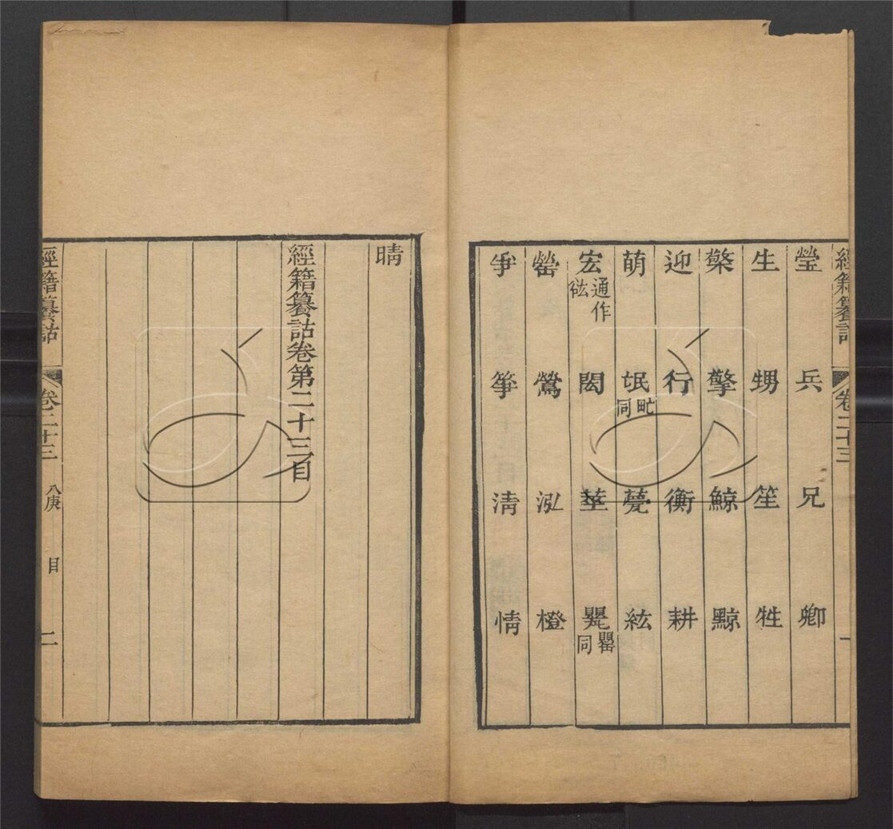 經籍籑詁 卷二十三 一
瑩 兵 兄 卿
生 甥 笙 牲
檠 擎 鯨 黥
迎 行 衡 耕
萌 氓甿同 甍 紘
宏通作紭 閎 莖 甖罌同
罃 鶯 泓 橙
爭 箏 清 情
晴
經籍籑詁卷第二十三目
經籍籑詁 卷二十三 八庚 目 二